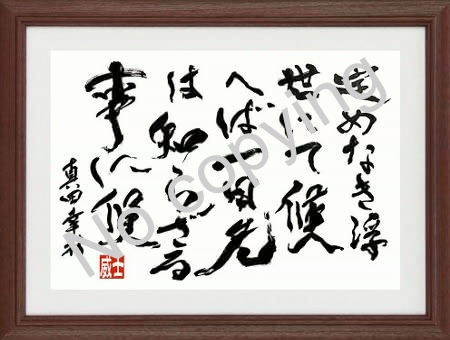 定めなき浮
世にて候
へば一日先
は知らざる
事に候
真田幸村
威士
No copying